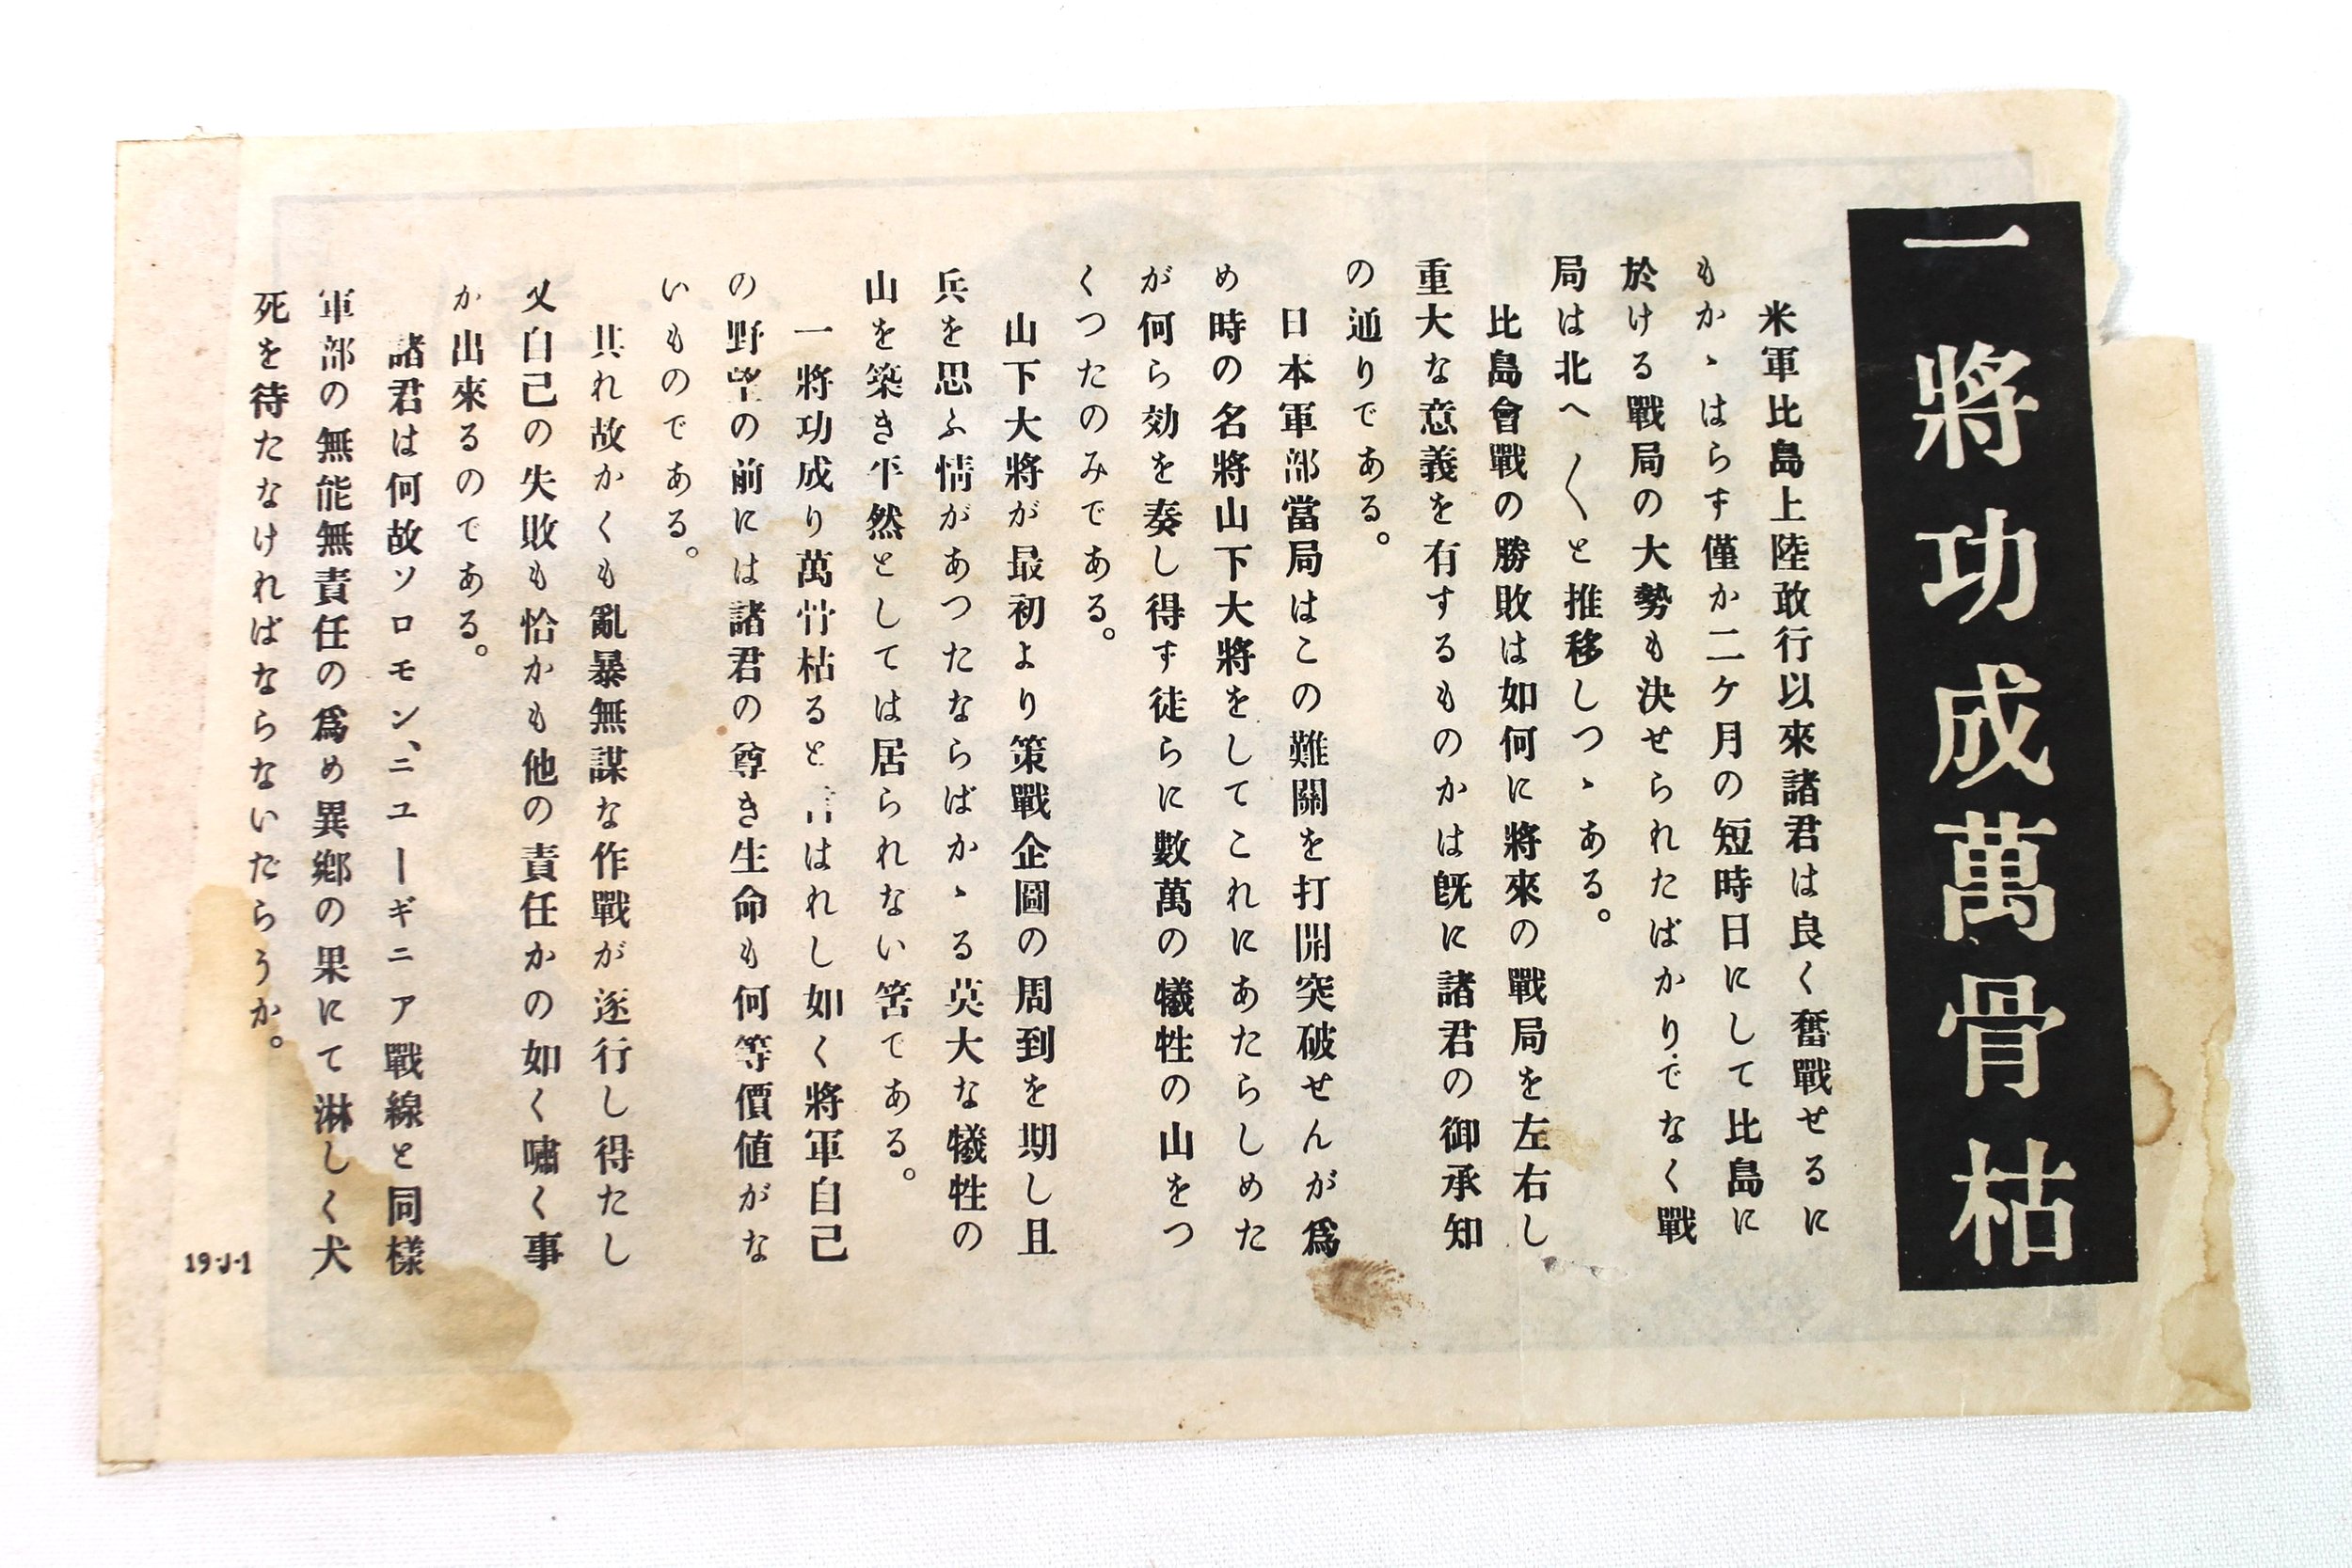 一將功成萬骨枯
米軍比島上陸敢行以來諸君は良く奮戰せるに
もかゝはらず僅か二ケ月の短時日にして比島に
於ける戰局の大勢も決せられたばかりでなく戰
局は北へ〱と推移しつゝある。
比島會戰の勝敗は如何に將來の戰局を左右し
重大な意義を有するものかは既に諸君の御承知
の通りである。
日本軍部當局はこの難關を打開突破せんが爲
め時の名將山下大將をしてこれにあたらしめた
が何ら効を奏し得ず徒らに數萬の犧牲の山をつ
くつたのみである。
山下大將が最初より策戰企圖の周到を期し且
兵を思ふ情があつたならばかゝる莫大な犧牲の
山を築き平然としては居られない筈である。
一將功成り萬骨枯ると言はれし如く將軍自己
の野望の前には諸君の尊き生命も何等價値がな
いものである。
其れ故かくも亂暴無謀な作戰が逐行し得たし
又自己の失敗も恰かも他の責任かの如く嘯く事
か出來るのである。
諸君は何故ソロモン、ニユーギニア戰線と同樣
軍部の無能無責任の爲め異鄕の果にて淋しく犬
死を待たなければならないだらうか。
19-J-1